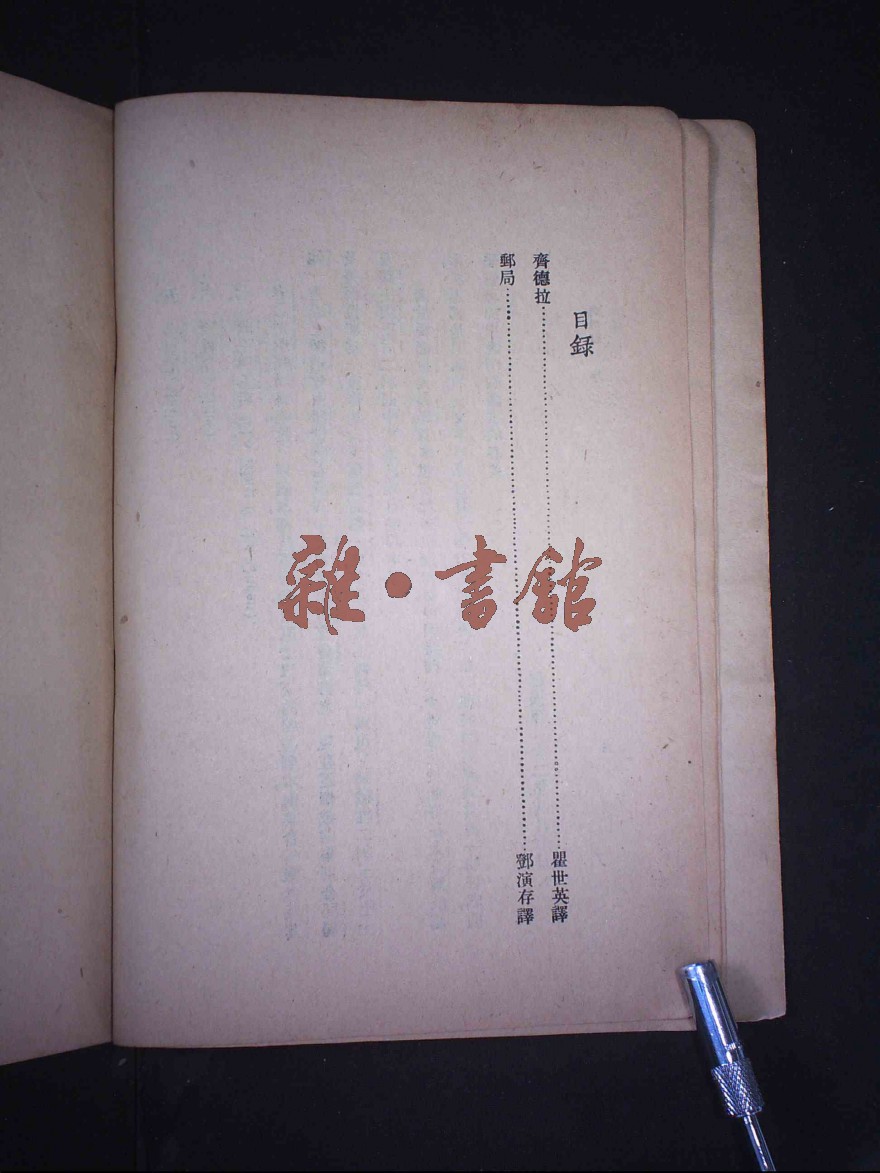 目録
齊德拉……………………………………瞿世英譯
郵局……………………………………鄧演存譯
雜·書館